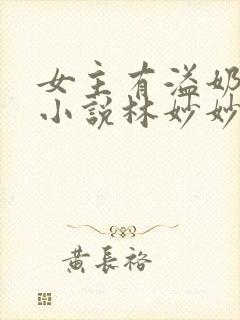 女主有溢奶
小說林妙妙
黄長裕